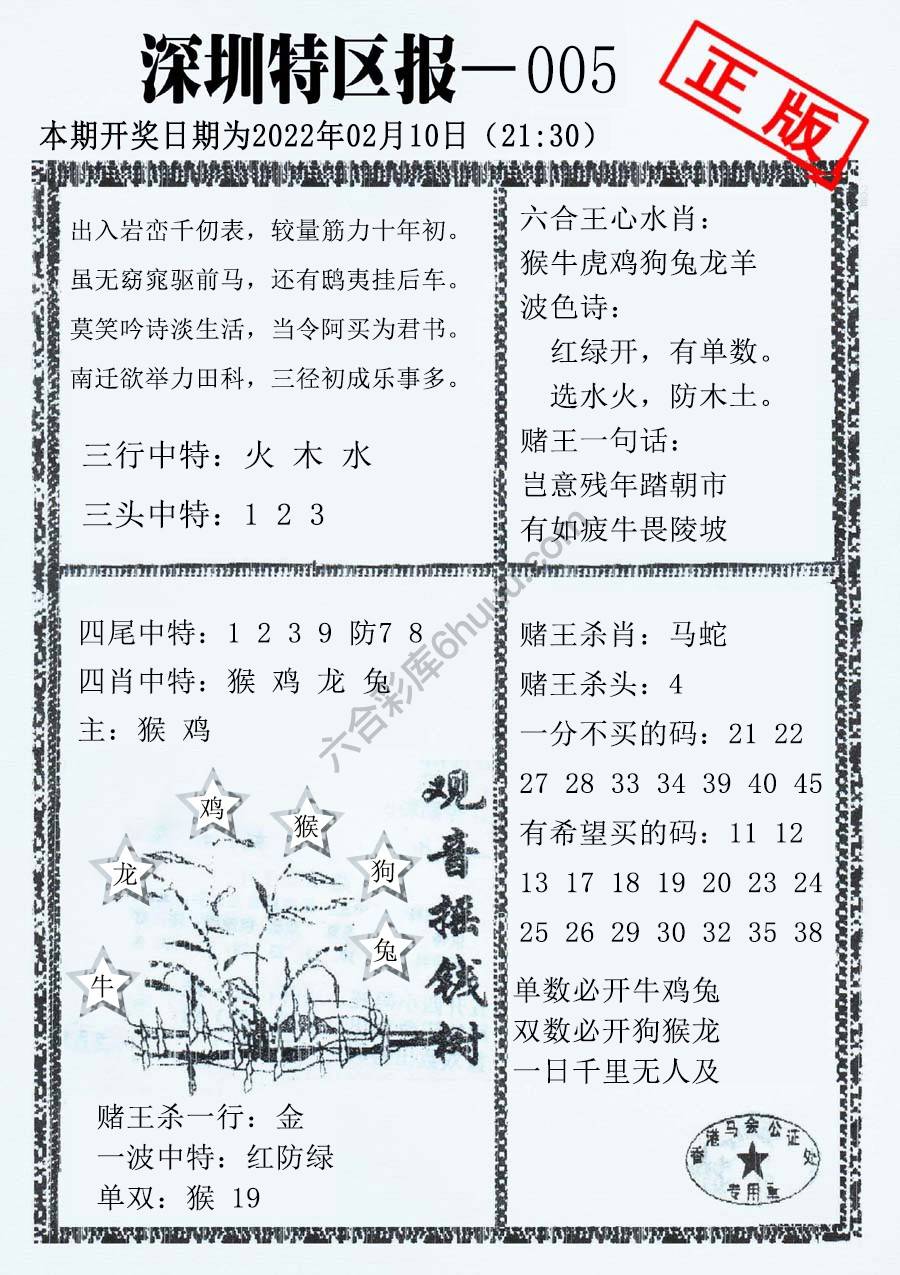 深圳特区报—005
正版
本期开奖日期为2022年02月10日（21:30）
出入岩峦千仞表，较量筋力十年初。
虽无窈窕驱前马，还有鸱夷挂后车。
莫笑吟诗淡生活，当令阿买为君书。
南迁欲举力田科，三径初成乐事多。
三行中特：火 木 水
三头中特：1 2 3
六合王心水肖：
猴牛虎鸡狗兔龙羊
波色诗：
红绿开，有单数。
选水火，防木土。
赌王一句话：
岂意残年踏朝市
有如疲牛畏陵坡
四尾中特：1 2 3 9 防7 8
四肖中特：猴 鸡 龙 兔
主：猴 鸡
鸡
猴
龙
狗
兔
牛
观音摇钱树
赌王杀一行：金
一波中特：红防绿
单双：猴 19
赌王杀肖：马蛇
赌王杀头：4
一分不买的码：21 22
27 28 33 34 39 40 45
有希望买的码：11 12
13 17 18 19 20 23 24
25 26 29 30 32 35 38
单数必开牛鸡兔
双数必开狗猴龙
一日千里无人及
香港马会公证处
专用章
六合彩库6huuu.com